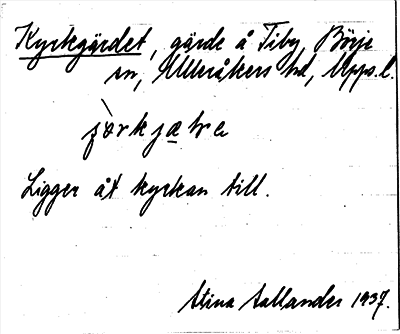 Kyrkgärdet, gärde å Tiby, Börje
sn, Ulleråkers hd, Upps. l.
Ligger åt kyrkan till.
Stina Aallander 1937.